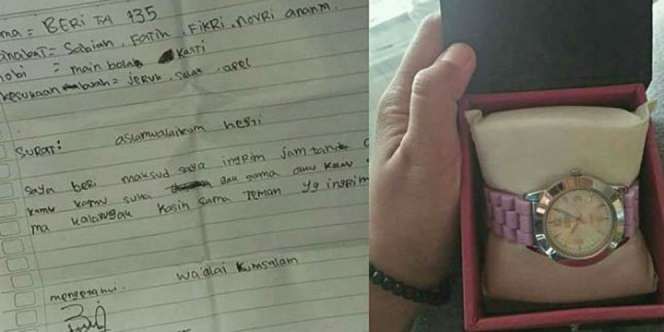 ma = BERI TA 135
anabat = Sabiah, Fatih, Fikri, novri ananm.
hobi = main bola Kasti
kesukaan buah = jeruk, salak, apel
SURAT: aslamwalaikum hesti
saya beri maksud saya ingrim jam tangan
kamu kamu suka dau sama aku kamu
ma kalawgak kasih sama teman yg ingrim
wa'alai kumsalam
mengetahui.